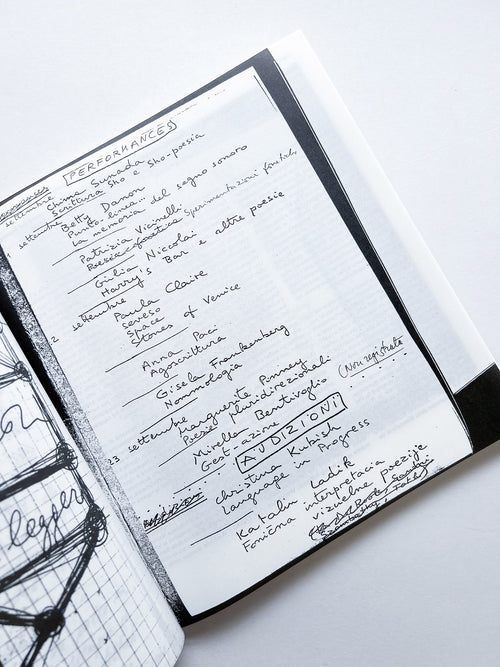 [PERFORMANCES]
settembre Chima Sunada
Scrittura Sho e Sho-poesia
settembre Betty Danon
Punto-linea...
La memoria del segno sonoro
Patrizia Vicinelli
Poesia fonetica Sperimentazioni
Giulia Niccolai
Harry's Bar e altre poesie
2 settembre
Paula Claire
Seveso
Space
Stones of Venice
Anna Paci
Agoscrittura
Gisela Frankenberg
Nommologia
23 settembre
Marguerite Pinney
Poesie pluridirezionali
Mirella Bentivoglio (Non registrata
Gest-azione
AUDIZIONI
Christina Kubish
Language in Progress
Katalin Ladik
Fonična interpretacia
vizuelne poezije
leggere